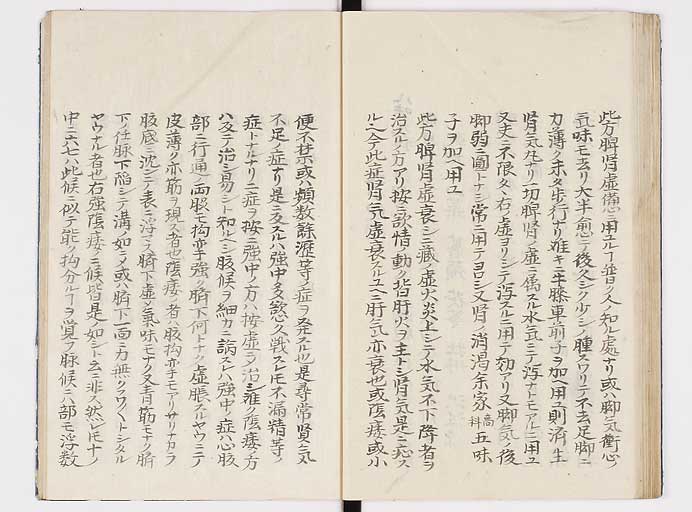 此方脾腎虚備ニ用ユルヿ普ク人ノ知ル處ナリ或ハ脚気衝心ノ
気味モ去リ大半愈テ後久シク少シノ腫スワリテ不去足脚ニ
力薄ク未タ歩行ナリ難キニ牛膝車前子ヲ加ヘ用ユ則済生
腎気丸ナリ一切脾腎ノ虚ニ属スル水気ニテ瀉ナトモアルニ用ユ
又丈ニ不限久々右ノ虚ヨリシテ瀉スルニ用テ効アリ又脚気ノ後
脚弱ニ圓トナシ常ニ用テ呂シ又腎ノ消渇余家高料五味
子ヲ加ヘ用ユ
此方脾腎虚衰シ三蔵ノ虚火炎上シテ水気不下降者ヲ
治スルノ方アリ按ニ欲情ノ動ク皆肝火ヲ主トシ腎気是ニ應ス
ルヘシテ此症腎気虚衰スルユヘニ肝気亦衰也或陰痿或小
便不禁或ハ頻数餘瀝等ノ症ヲ発スル也是尋常腎气
不足ノ症ナリ是ニ反スルハ強中多欲心久戦スレモ不漏精等ノ
症トナルナリ二症ヲ按ニ強中ノ方ハ按虚ヲ治シ難ク陰痿ノ方
ハ反テ治シ易シト知ルヘシ腹候ヲ細カニ論スレハ強中ノ症ハ心腹
部ニ行通ノ両股モ拘挛強ク臍下何トナク虚脹スルヤウニテ
皮薄ク亦筋ヲ現ス者也陰痿ノ者ハ腹拘挛モアリサリナカラ
腹底ニ沈シテ表ニ浮コス臍下虚シ気味モナク又青筋モナク臍
下ノ任脉下陥シテ溝ノ如シ又或ハ臍下一面ニ力無クフワヘトシタル
ヤウナル者也右強陰痿ノ二候皆是ノ如シト云ニ非ス然レモナノ
中ニ六七ハ此候ニ似テ能ク拘分ルヿヲ覚フ脉候ニハ部モ浮数